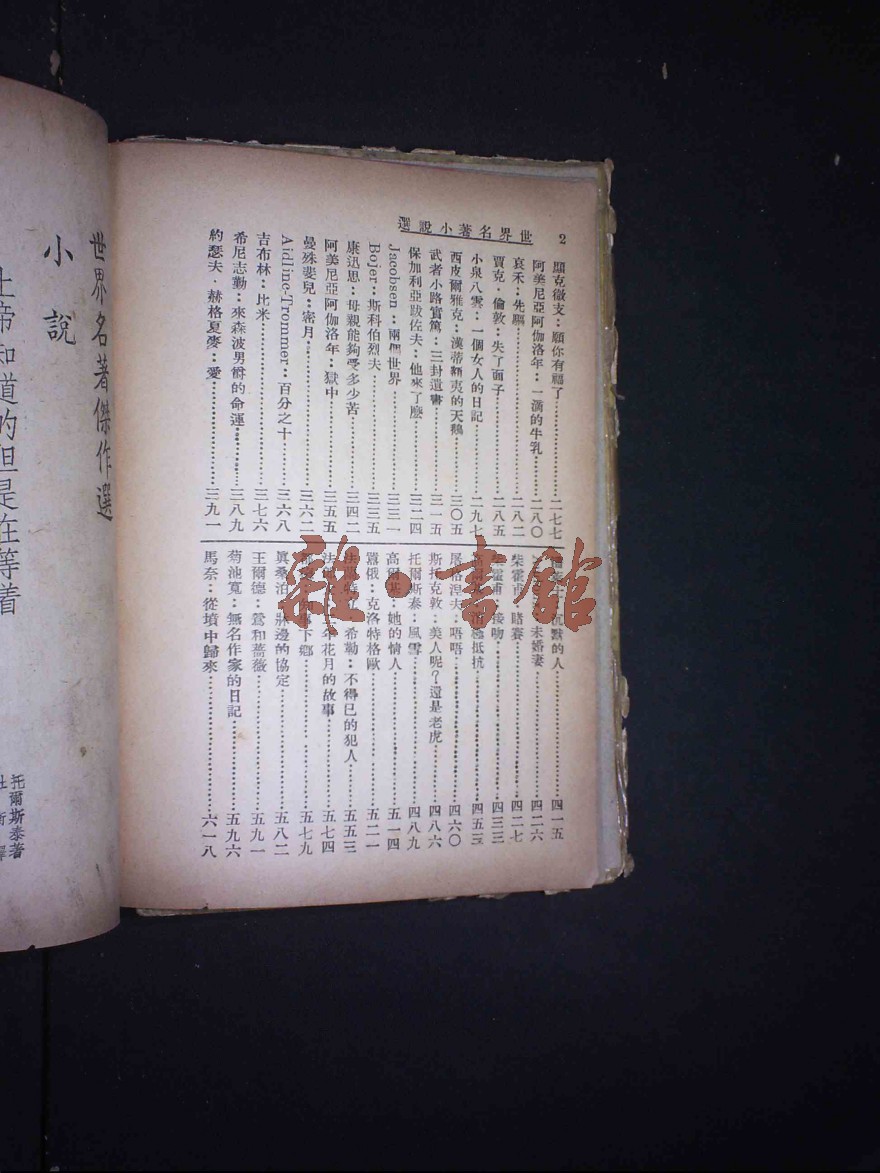 2
世界名著小說選
顯克微支：願你有福了……二七七
阿美尼亞阿伽洛年：一滴的牛乳……二八〇
哀禾：先驅……二八二
賈克·倫敦：失了面子……二八五
小泉八雲：一個女人的日記……二九七
西皮爾雅克：漢蒂額夷的天鵝……三〇五
武者小路實篤：三封遺書……三一五
保加利亞跋佐夫：他來了麼……三二四
Jacobsen：兩個世界……三三一
Bojer：斯科伯烈夫……三三五
康迅思：母親能夠受多少苦……三四二
阿美尼亞阿伽洛年：獄中……三五五
曼殊斐兒：蜜月……三六二
Aidline-Trommer：百分之十……三六八
吉布林：比米……三七六
希尼志勒：來森波男爵的命運……三八九
約瑟夫·赫格夏麥：愛……三九一
沉默的人……四一五
未婚妻……四二六
柴霍甫：賭賽……四二七
接吻……四三三
抵抗……四五三
屠格涅夫：唔唔……四六〇
斯托克敦：美人呢？還是老虎……四八六
托爾斯泰：風雪……四八九
高爾基：她的情人……五一四
囂俄：克洛特格歐……五二一
希勒：不得已的犯人……五五三
花月的故事……五七四
下鄉……五七九
莫桑泊：牀邊的協定……五八二
王爾德：鶯和薔薇……五九一
菊池寬：無名作家的日記……五九六
馬奈：從墳中歸來……六一八
世界名著傑作選
小說
上帝知道的但是在等着
托爾斯泰著
雜·書館